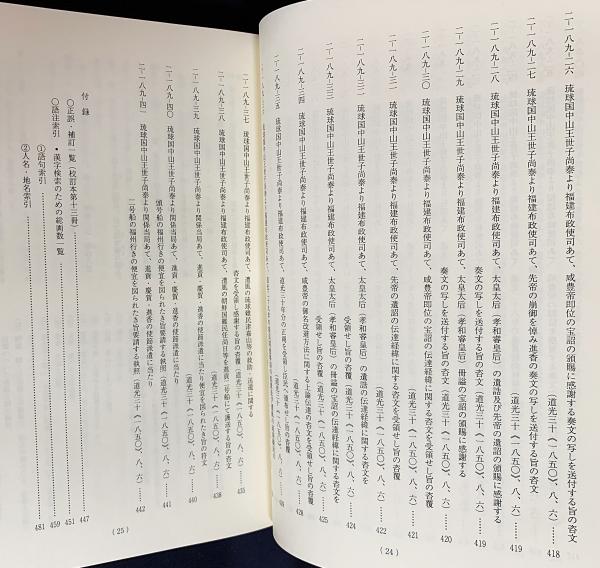 二-一八九-二六 琉球国中山王世子尚泰より福建布政使司あて、咸豊帝即位の宝詔の頒賜に感謝する奏文の写しを送付する旨の咨文
(道光三十《一八五〇》、八、六)…… 418
二-一八九-二七 琉球国中山王世子尚泰より福建布政使司あて、先帝の崩御を悼み進香の奏文の写しを送付する旨の咨文
(道光三十《一八五〇》、八、六)…… 419
二-一八九-二八 琉球国中山王世子尚泰より福建布政使司あて、太皇太后(孝和睿皇后)の遺誥及び先帝の遺詔の頒賜に感謝する
奏文の写しを送付する旨の咨文(道光三十《一八五〇》、八、六)…… 419
二-一八九-二九 琉球国中山王世子尚泰より福建布政使司あて、太皇太后(孝和睿皇后)冊諡の宝詔の頒賜に感謝する
奏文の写しを送付する旨の咨文(道光三十《一八五〇》、八、六)…… 420
二-一八九-三〇 琉球国中山王世子尚泰より福建布政使司あて、咸豊帝即位の宝詔の伝達経緯に関する咨文を受領せし旨の咨覆
(道光三十《一八五〇》、八、六)…… 421
二-一八九-三一 琉球国中山王世子尚泰より福建布政使司あて、先帝の遺詔の伝達経緯に関する咨文を受領せし旨の咨覆
(道光三十《一八五〇》、八、六)…… 422
二-一八九-三二 琉球国中山王世子尚泰より福建布政使司あて、太皇太后(孝和睿皇后)の遺誥の伝達経緯に関する咨文を
受領せし旨の咨覆(道光三十《一八五〇》、八、六)…… 424
二-一八九-三三 琉球国中山王世子尚泰より福建布政使司あて、太皇太后(孝和睿皇后)の冊諡の宝詔の伝達経緯に関する咨文を
受領せし旨の咨覆(道光三十《一八五〇》、八、六)…… 425
二-一八九-三四 琉球国中山王世子尚泰より福建布政使司あて、咸豊帝の御名改避方法に関する上諭伝達の咨文を受領せし旨の咨覆
(道光三十《一八五〇》、八、六)…… 428
二-一八九-三五 琉球国中山王世子尚泰より福建布政使司あて、道光三十年分の正朔を受領し臣民へ頒布せし旨の咨覆
(24)
二-一八九-三七 琉球国中山王世子尚泰より福建布政使司あて、遭風の琉球難民津嘉山等の救助・送還に関する
咨文を受領し感謝する旨の咨覆(道光三十《一八五〇》、八、六)…… 435
二-一八九-三八 琉球国中山王世子尚泰より福建布政使司あて、遭風の朝鮮国難民
(道光三十《一八五〇》、八、六)…… 438
二-一八九-三九 琉球国中山王世子尚泰より関係当局あて、進貢・慶賀・進香の使節派遣に当たり便宜を図られたき旨の符文
(道光三十《一八五〇》、八、六)…… 440
二-一八九-四〇 琉球国中山王世子尚泰より関係当局あて、進貢・慶賀・進香の使節派遣に当たり
頭号船の福州行きの便宜を図られたき旨要請する執照(道光三十《一八五〇》、八、六)…… 441
二-一八九-四一 琉球国中山王世子尚泰より関係当局あて、進貢・慶賀・進香の使節派遣に当たり
二号船の福州行きの便宜を図られたき旨要請する執照(道光三十《一八五〇》、八、六)…… 442
付録
〇正誤・補訂一覧(校訂本第十三冊)…… 447
〇語注索引 • 漢字検索のための総画数一覧…… 451
①語句索引…… 459
②人名・地名索引…… 481
(25)